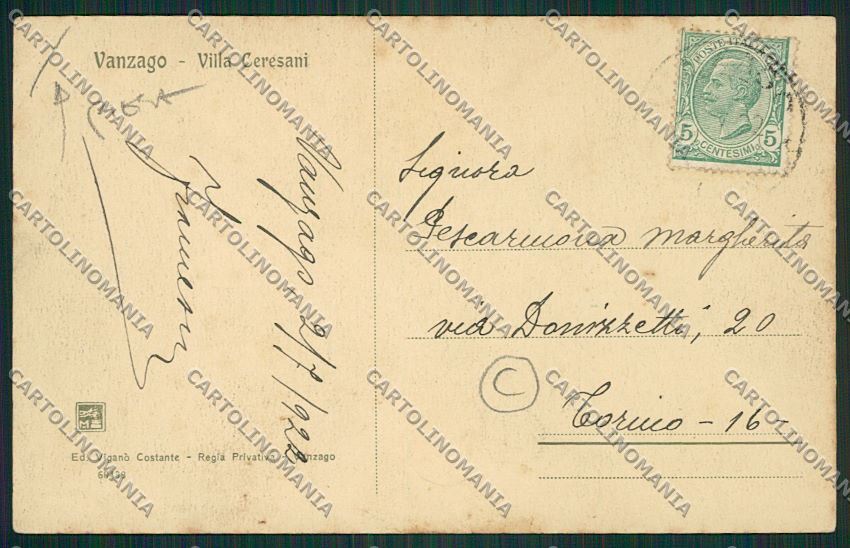 Vanzago - Villa Ceresani
Vanzago 2/7/922
Ed. Viganò Costante - Regia Privativa - Vanzago
POSTE ITALIANE
5 5
CENTESIMI
Signora
Pescarmona Margherita
via Donizzetti, 20
Torino - 16 -
C
CARTOLINOMANIA